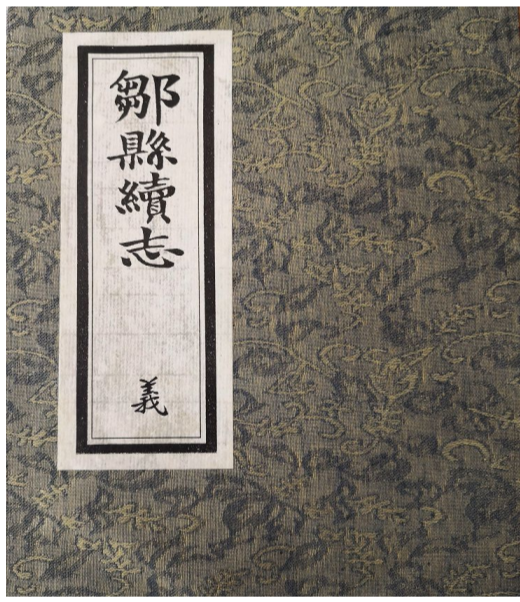 鄒縣續志
義